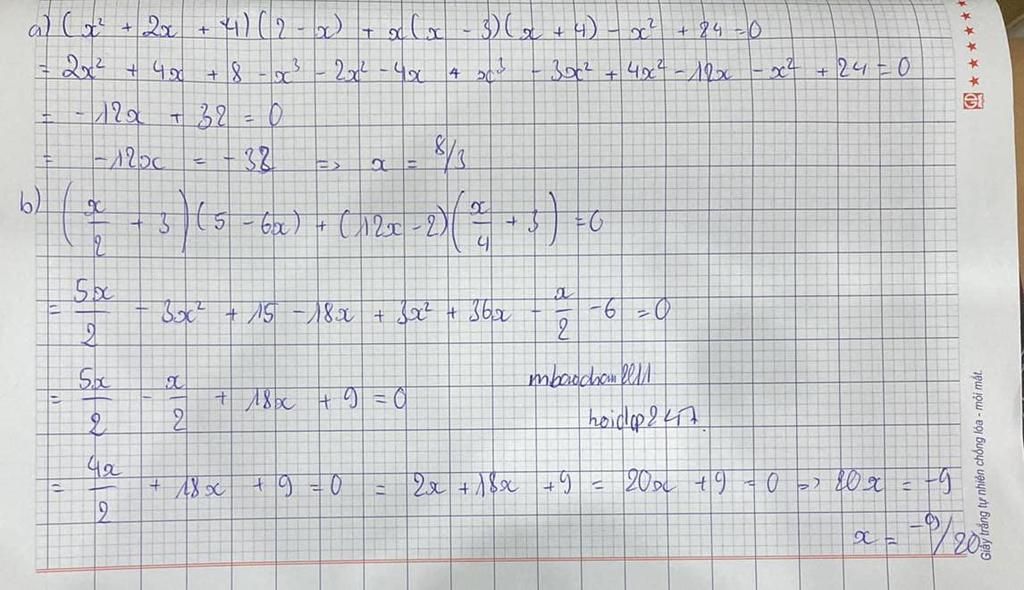 a) (x² + 2x + 4)(2 - x) + x(x - 3)(x + 4) - x² + 24 = 0
= 2x² + 4x + 8 - x³ - 2x² - 4x + x³ - 3x² + 4x² - 12x - x² + 24 = 0
= -12x + 32 = 0
= -12x = -32 => x = 8/3
b) (x/2 + 3)(5 - 6x) + (12x - 2)(x/4 + 3) = 0
= 5x/2 - 3x² + 15 - 18x + 3x² + 36x - x/2 - 6 = 0
= 5x/2 - x/2 + 18x + 9 = 0
mbaochau2011
hoidap247.
= 4x/2 + 18x + 9 = 0 = 2x + 18x + 9 = 20x + 9 = 0 => 20x = -9
x = -9/20
Giấy trắng tự nhiên chống lóa - mỏi mắt.